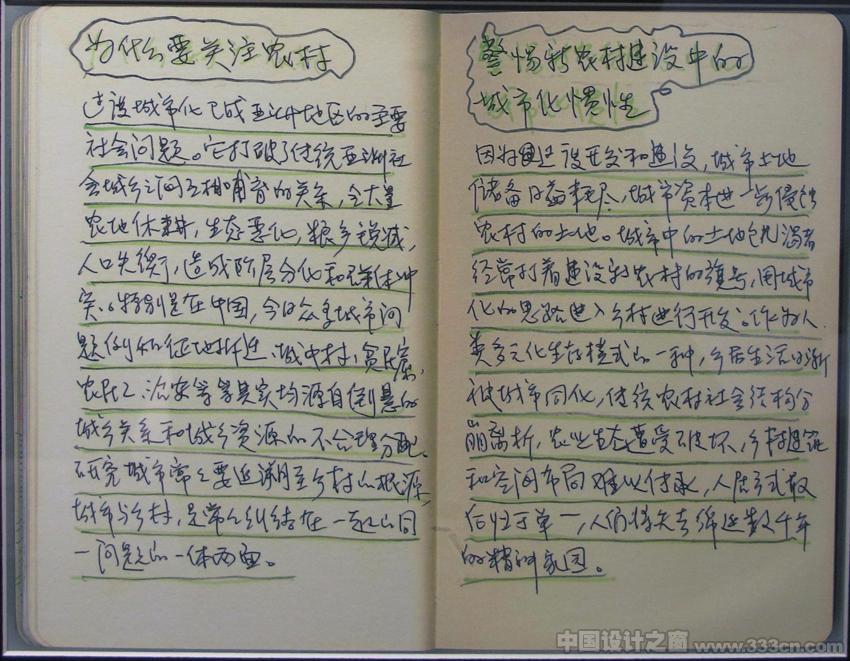 为什么要关注农村
过度城市化已成亚洲地区的重要
社会问题。它打破了传统亚洲社
会城乡之间互相哺育的关系，令大量
农地休耕，生态恶化，粮产锐减，
人口失衡，造成阶层分化和群体冲
突。特别是在中国，今日众多城市问
题例如征地拆迁、城中村、贫民窟、
农民工、治安等等其实均源自倒悬的
城乡关系和城乡资源的不合理分配。
研究城市常常要追溯至乡村的根源，
城市与乡村，是常常纠结在一起的同
一问题的一体两面。
警惕新农村建设中的
城市化惯性
因为过度开发和建设，城市土地
储备日益耗尽，城市资本进一步侵蚀
农村的土地。城市中的土地饥渴者
经常打着建设新农村的旗号，用城市
化的思路进入乡村进行开发。作为人
类多元化生存模式的一种，乡居生活日渐
被城市同化，传统农村社会结构分
崩离析，农业生态遭受破坏，乡村建筑
和空间布局难以传承，人居方式最
后归于单一，人们将失去绵延数千年
的精神家园。
中国设计之窗 www.333cn.com